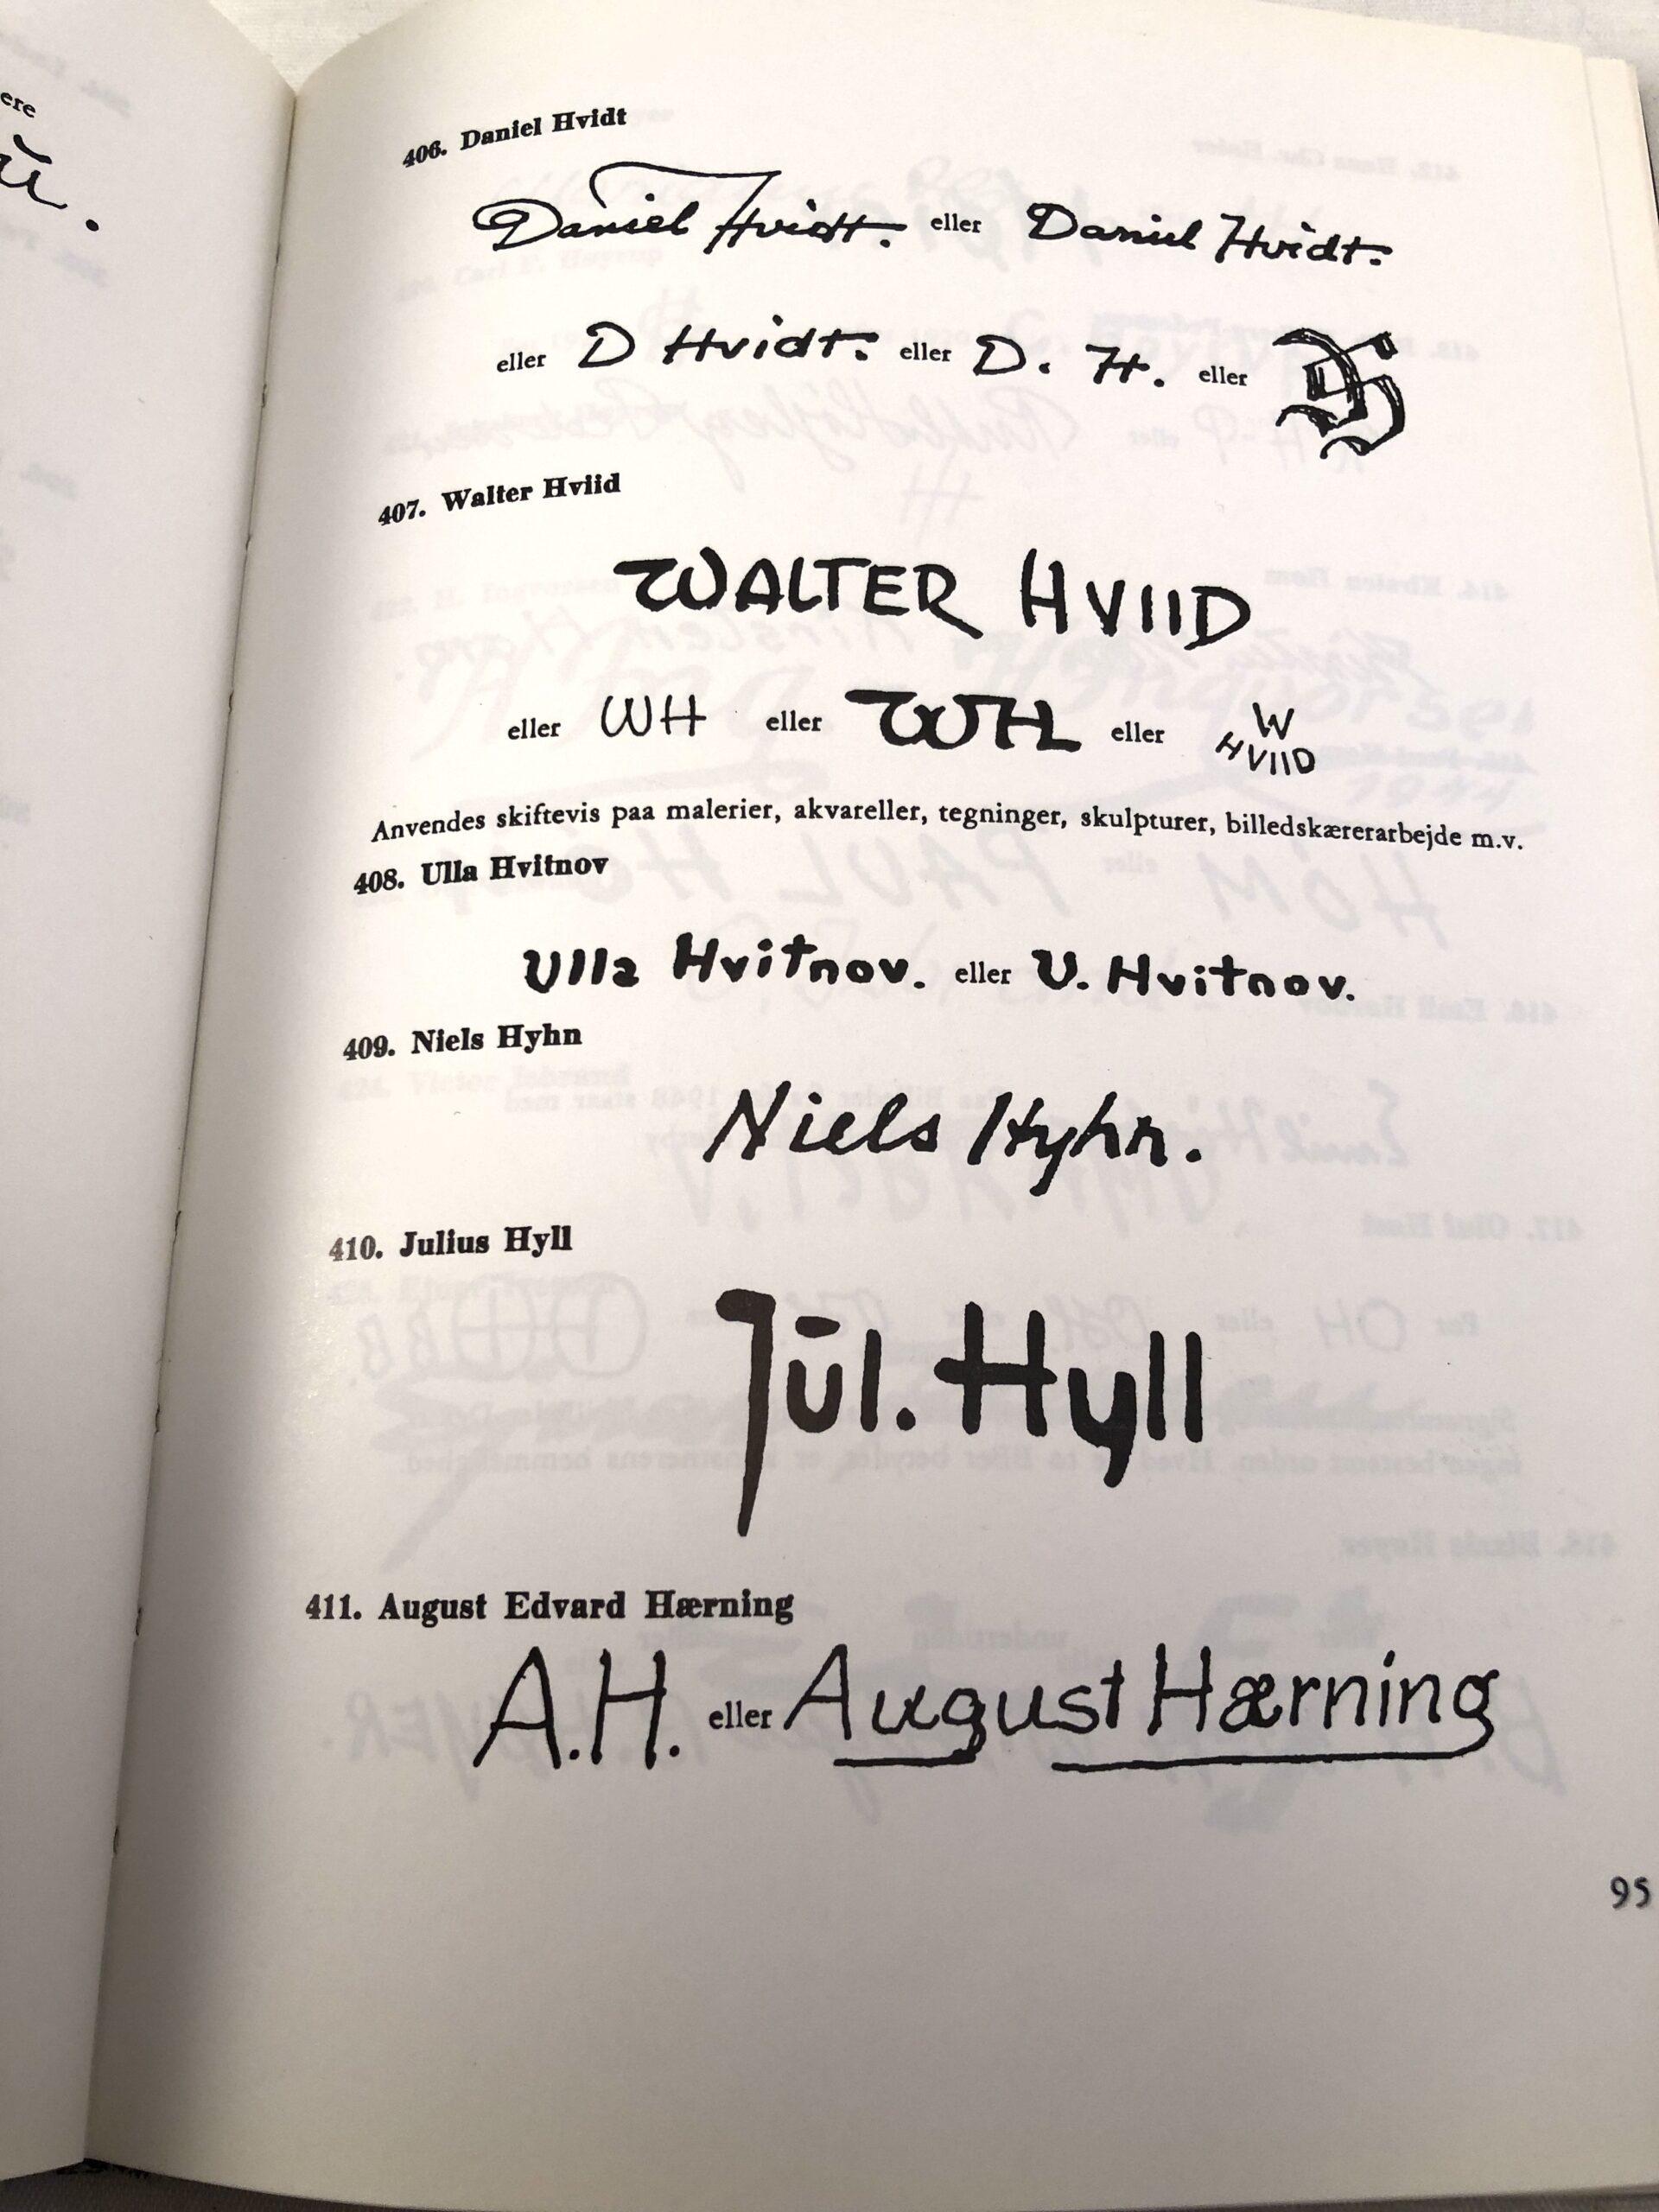 ere
406. Daniel Hvidt
Daniel Hvidt. eller Daniel Hvidt.
eller D Hvidt. eller D. H. eller
407. Walter Hviid
WALTER HVIID
eller WH eller WH eller W
HVIID
Anvendes skiftevis paa malerier, akvareller, tegninger, skulpturer, billedskærerarbejde m.v.
408. Ulla Hvitnov
Ulla Hvitnov. eller U. Hvitnov.
409. Niels Hyhn
Niels Hyhn.
410. Julius Hyll
Jūl. Hyll
411. August Edvard Hærning
A.H. eller August Hærning
95